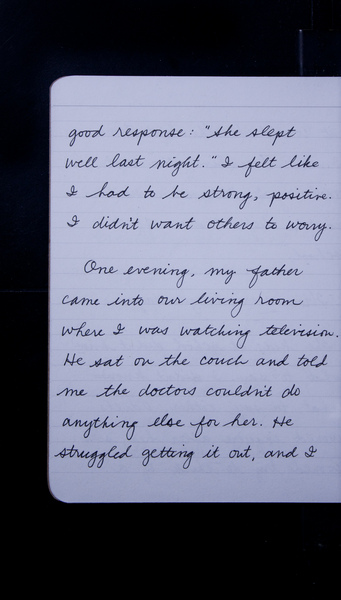 good response: "She slept
well last night." I felt like
I had to be strong, positive.
I didn't want others to worry.
One evening, my father
came into our living room
where I was watching television.
He sat on the couch and told
me the doctors couldn't do
anything else for her. He
struggled getting it out, and I